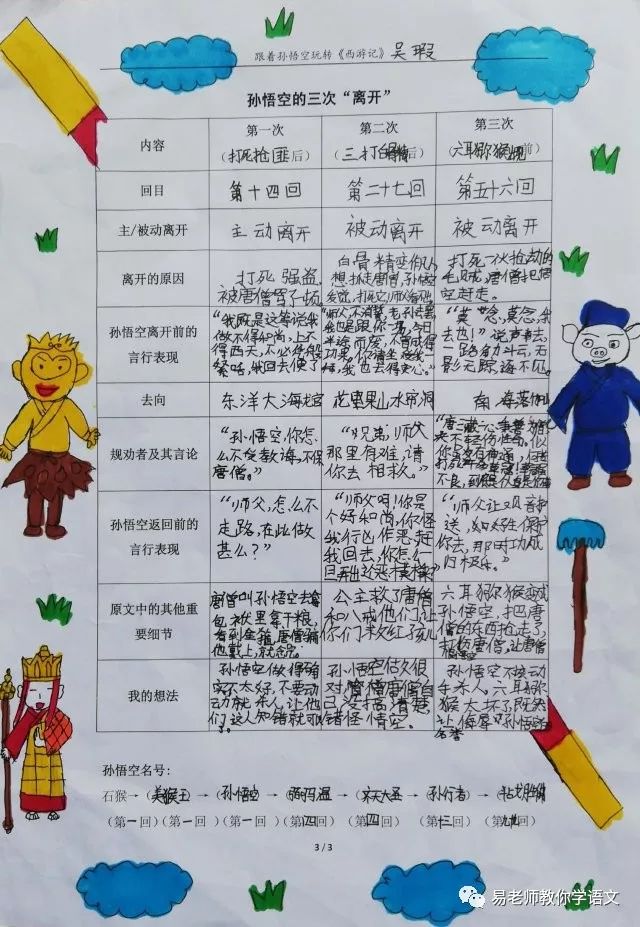 跟着孙悟空玩转《西游记》 吴 瑕
孙悟空的三次“离开”
内容 第一次 第二次 第三次
(打死抢匪后) (三打白骨精后) (六耳猕猴出现前)
回目 第十四回 第二十七回 第五十六回
主/被动离开 主动离开 被动离开 被动离开
离开的原因
打死强盗,
被唐僧骂了顿
白骨精变化
想抓走唐僧,孙悟空
打死一伙抢劫的
毛贼,唐僧把悟
空赶走。
孙悟空离开前的
言行表现
“我既是这等说我
做不得和尚,上不
得西天,不必
我回去便了
“师父,不消
我也是跟你一场,今日
半途而废,不曾成得
功果,你请坐受我一
拜,我也去得安心。”
“莫念,莫念,我
去也!”说声去,
一路筋斗云,无
影无踪
去向 东洋大海 花果山水帘洞 南海落伽
规劝者及其言论
“孙悟空,你怎
么不受教诲,不保
唐僧。”
“兄弟,师父
那里有难,请
你去相救。”
“唐三藏
孙悟空返回前的
言行表现
“师父,怎么不
走路,在此做
甚么?”
“师父啊!你是
个好和尚,你怪
我行凶作恶,赶
我回去,你怎么一
旦弄出这恶模样
“师父让观音护
送,如好生保护
你去,那时功成
归极乐。”
原文中的其他重
要细节
唐僧叫孙悟空去拿
包袱里拿干粮,
看到金箍,唐僧
他戴上,就
公主救了唐僧
和八戒他们让
你们来救红孩儿
六耳猕猴变成
孙悟空,把唐
僧的东西抢走了,
打伤唐僧,让唐僧
我的想法
孙悟空做得确
实不太好,不要动
动就杀人,让他
们这人知错就可
孙悟空做久很
对,
已没搞清楚
错怪悟空。
孙悟空不该动
手杀人,六耳猕
猴太坏了,既然
让侮辱孙悟空
名誉
孙悟空名号:
石猴→(美猴王)→(孙悟空)→(弼马温)→(齐天大圣)→(孙行者)→(斗战胜佛)
(第一回)(第一回)(第一回)(第四回)(第四回)(第十三回)(第九九回)
3 / 3
易老师教你学语文